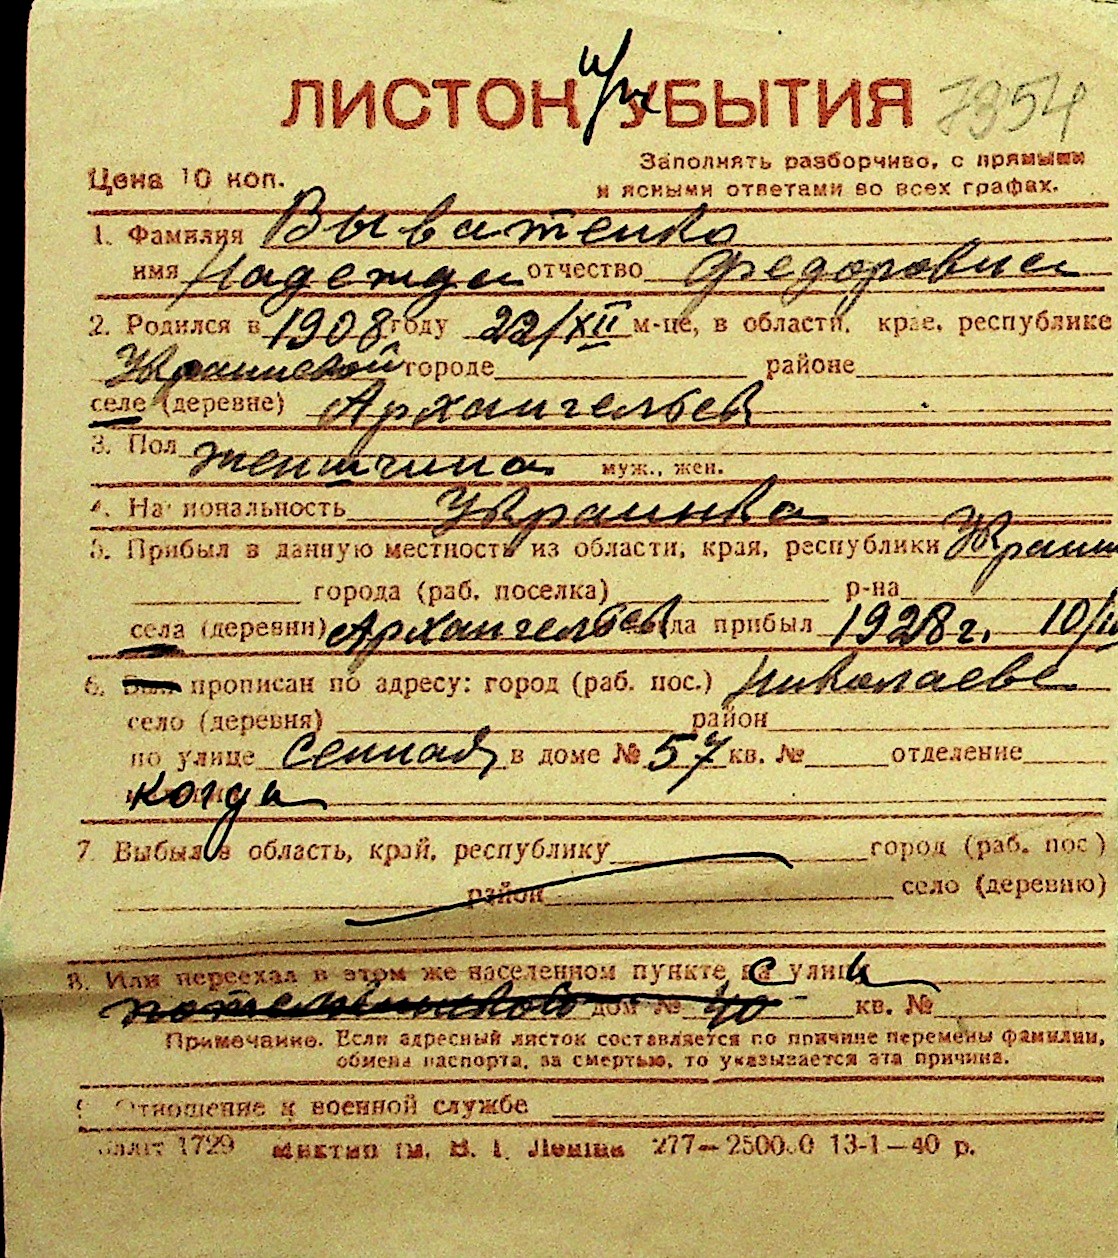 ЛИСТОК УБЫТИЯ 7954
Цена 10 коп.
Заполнять разборчиво, с прямыми
и ясными ответами во всех графах.
1. Фамилия Выватенко
имя Надежда отчество Федоровна
2. Родился в 1908 году 22/XII м-це, в области, крае, республике
Украинской городе районе
селе (деревне) Архангельев
3. Пол женщина муж., жен.
4. Национальность Украинка
5. Прибыл в данную местность из области, края, республики Украин
города (раб. поселка) р-на
села (деревни) Архангельев когда прибыл 1928 г. 10/
6. Был прописан по адресу: город (раб. пос.) Николаеве
село (деревня) район
по улице Сенная в доме № 57 кв. № отделение
когда
7. Выбыл в область, край, республику город (раб. пос.)
район село (деревню)
8. Или переехал в этом же населенном пункте с улицы
дом № 40 кв. №
Примечание. Если адресный листок составляется по причине перемены фамилии,
обмена паспорта, за смертью, то указывается эта причина.
9. Отношение к военной службе
1729 ім. В. І. Леніна 277—2500.0 13-1—40 р.